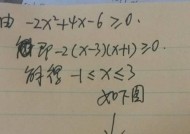 由 -2x²+4x-6≥0.
即 -2(x-3)(x+1)≥0.
解得 -1≤x≤3
如下图